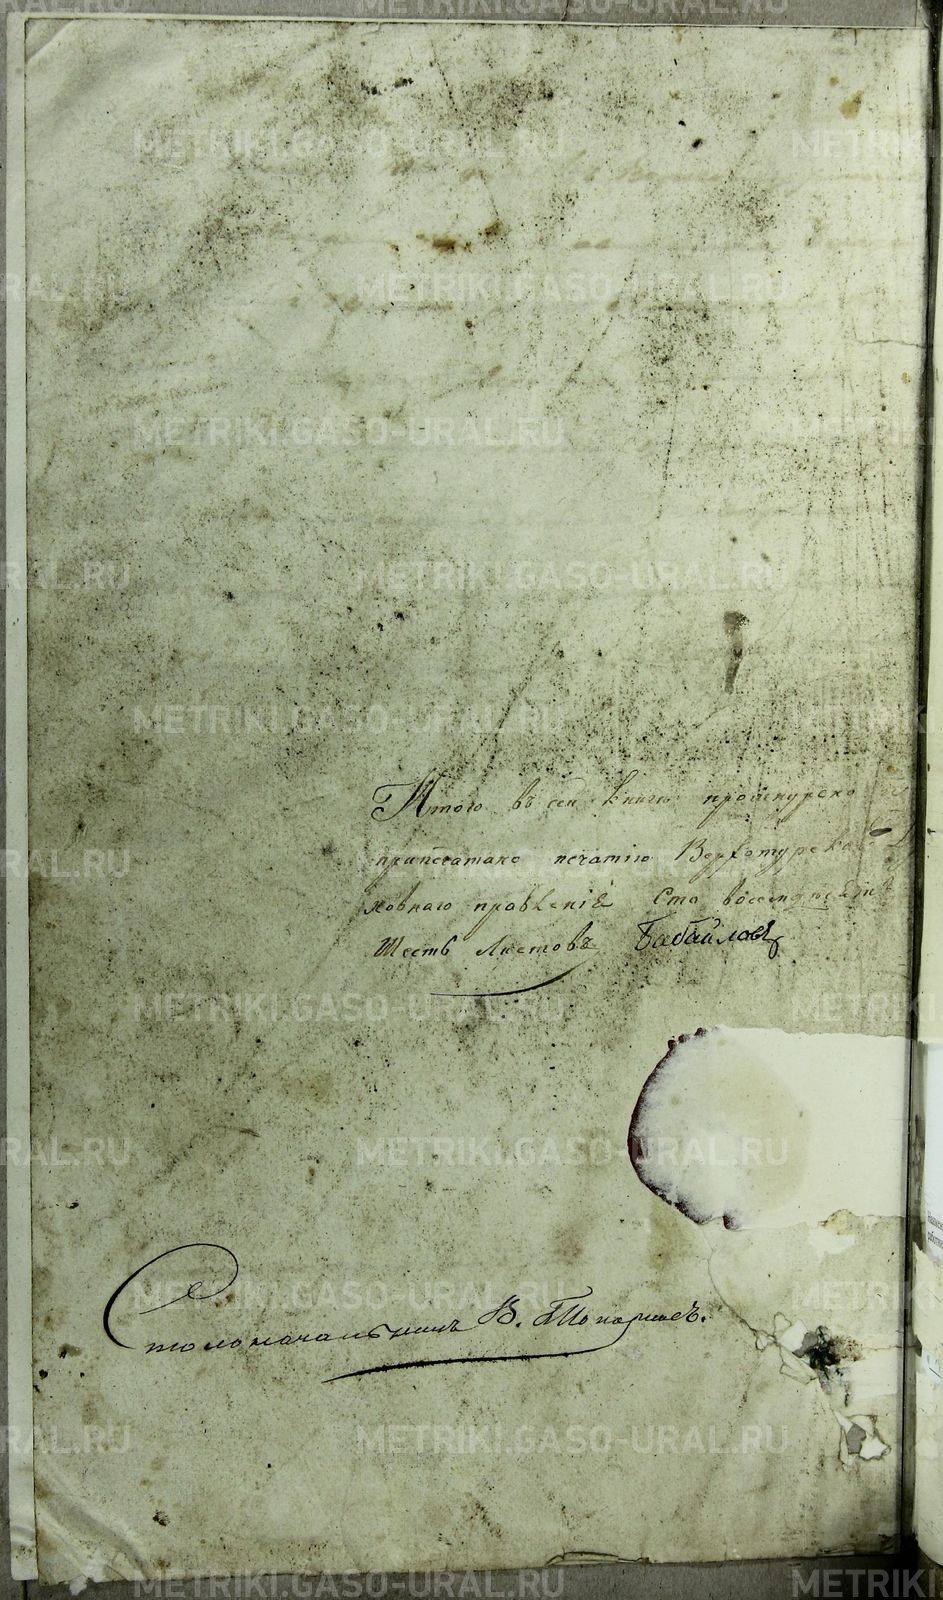 Итого въ сей книге прошнурено
припечатано печатію Верхотурскаго
ховнаго правленіе Сто восемьдесятъ
Шесть Листовъ Бабайловъ
Столоначальникъ В. Топорковъ.
METRIKI.GASO-URAL.RU